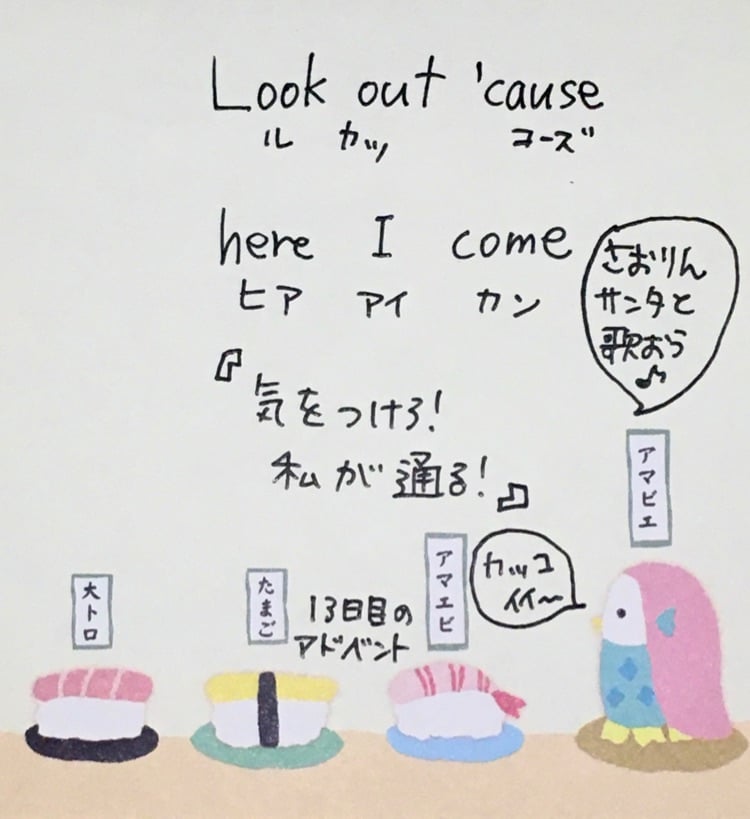 Look out 'cause
ル カッ コーズ
here I come
ヒア アイ カン
『気をつけろ!
私が通る!』
さおりん
サンタと
歌おう
♪
アマビエ
カッコ
イイ〜
アマエビ
13日目の
アドベント
たまご
大トロ